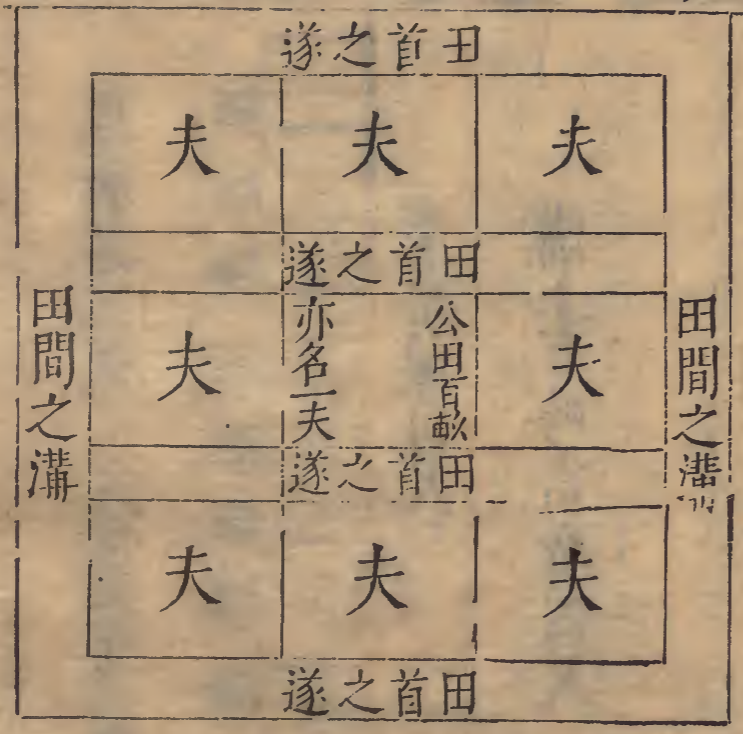 田首之遂
夫 夫 夫
田首之遂
田間之溝
夫
公田百畝
亦名一夫
夫
田間之溝
田首之遂
夫 夫 夫
田首之遂